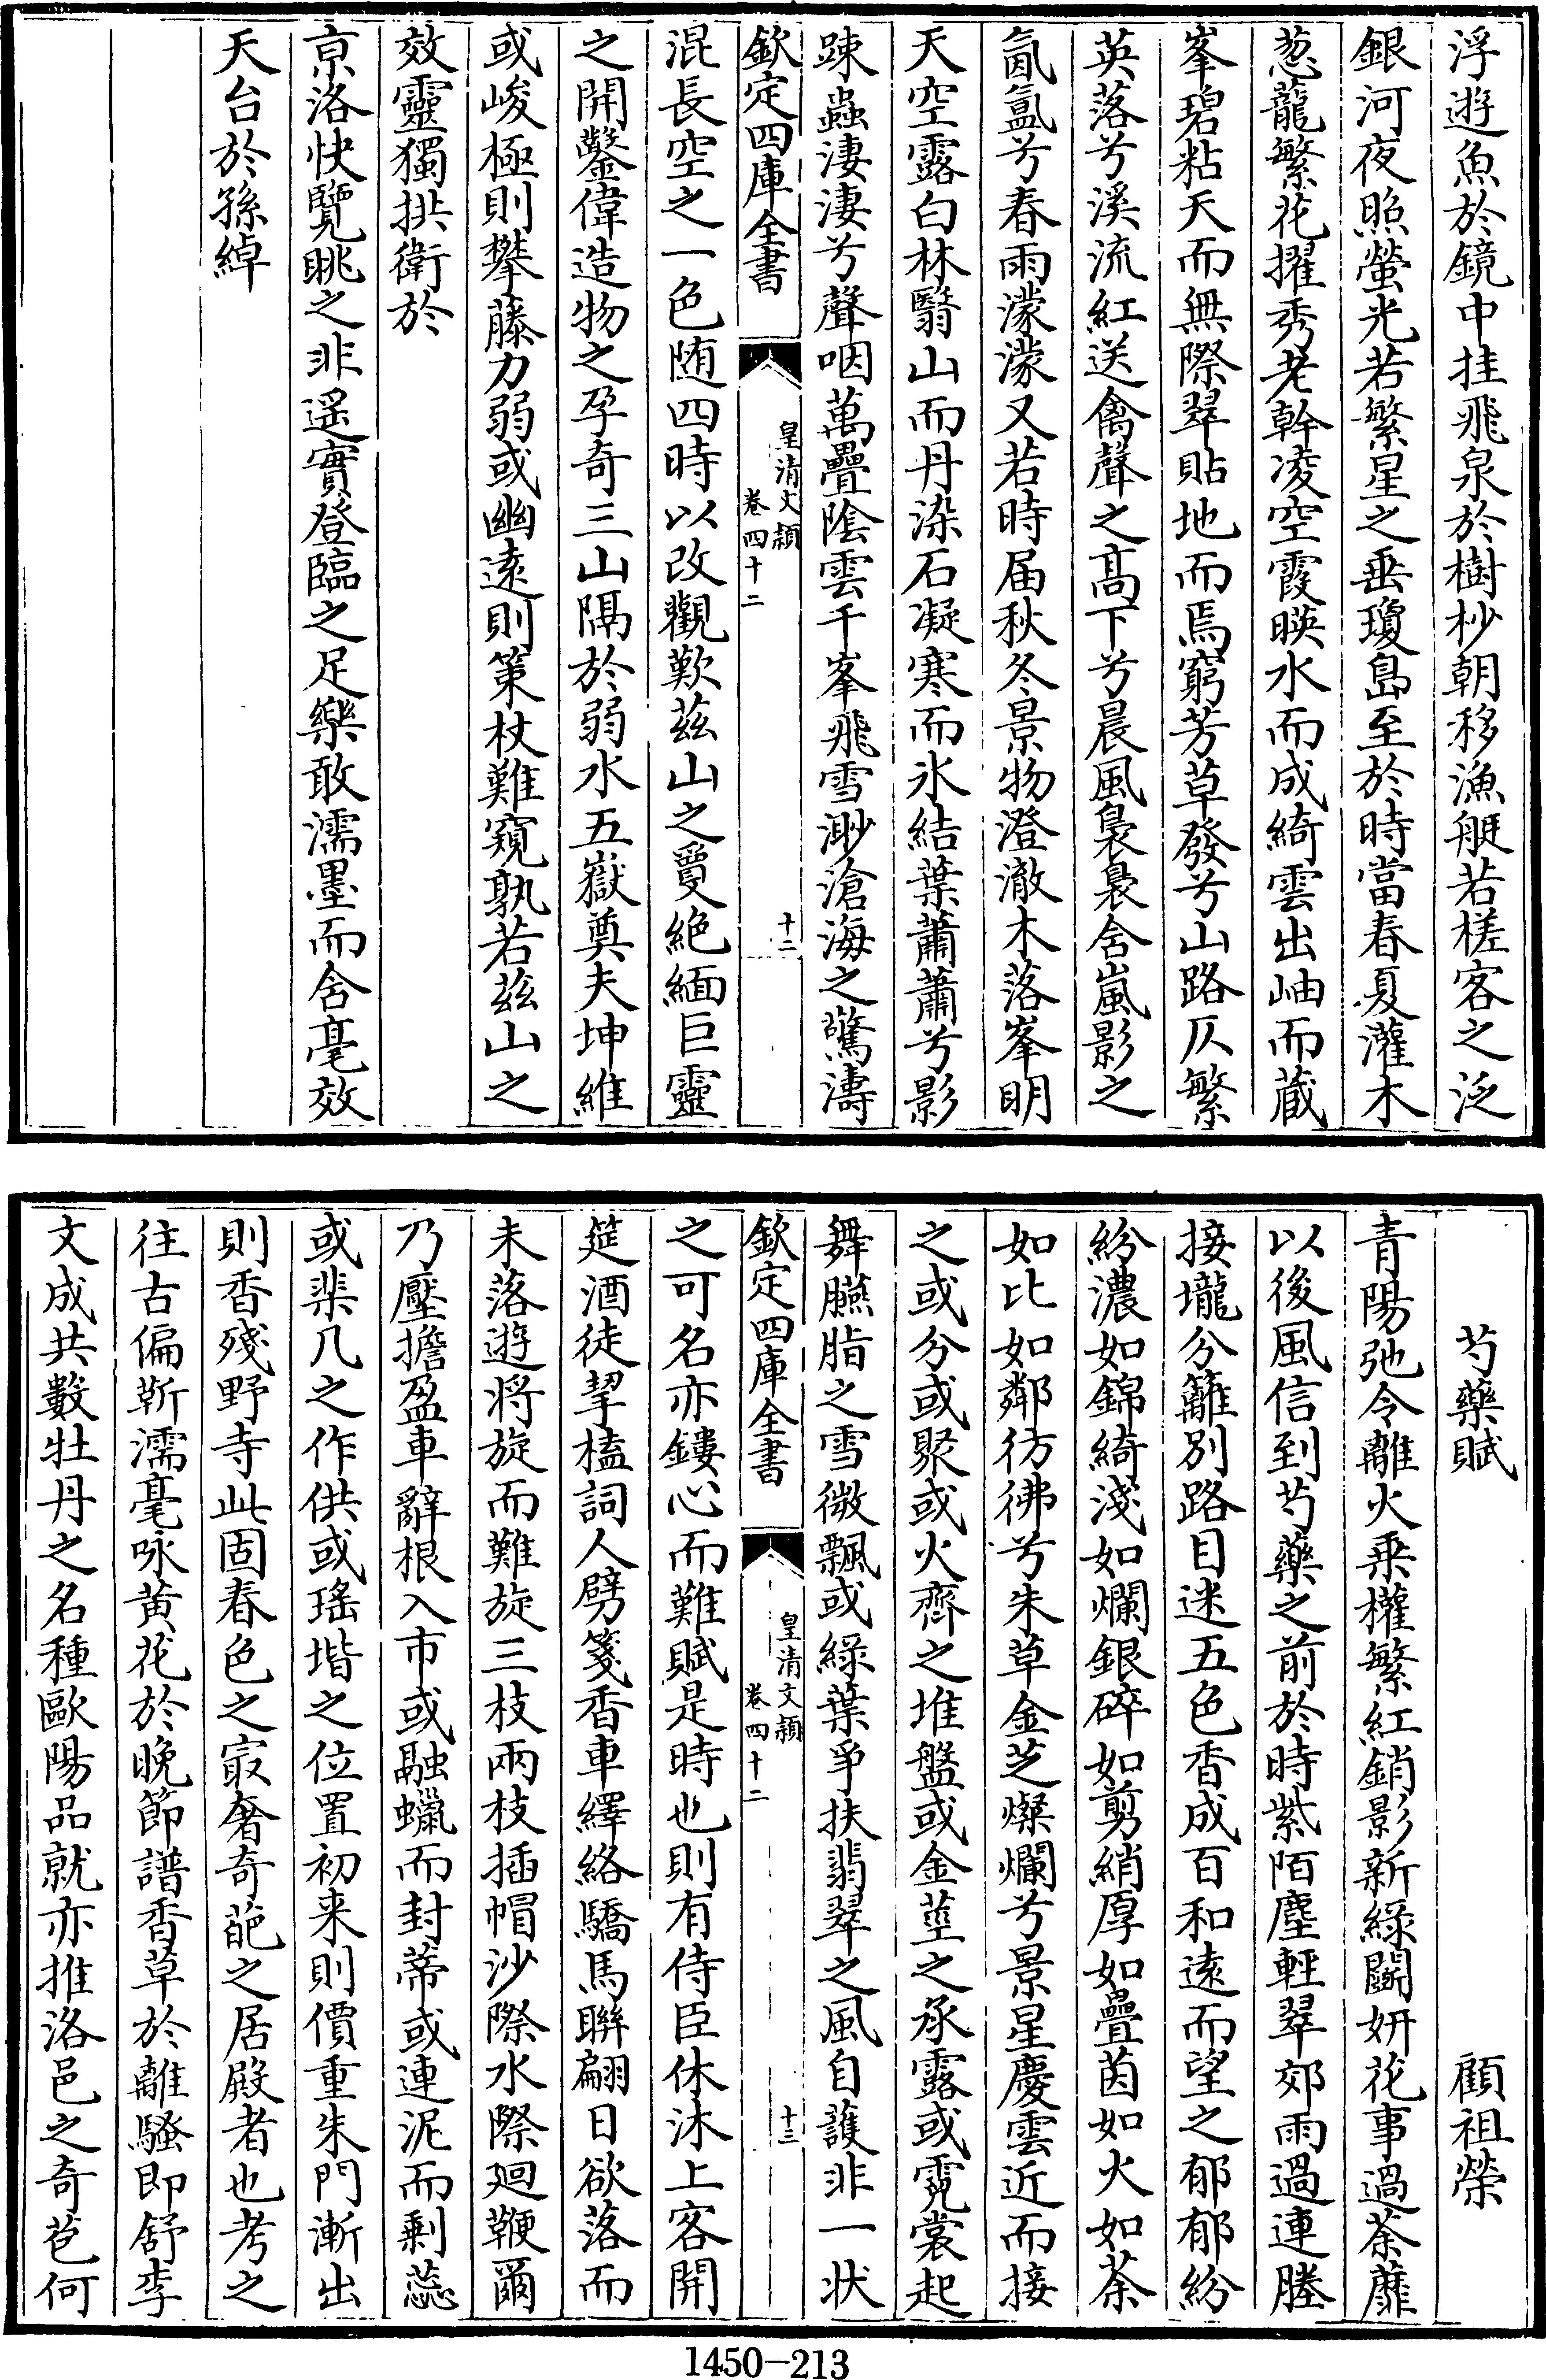 浮遊魚於鏡中挂飛泉於樹杪朝移漁艇若槎客之泛
銀河夜照螢光若繁星之垂瓊島至於時當春夏灌木
葱蘢繁花擢秀老幹凌空霞暎水而成綺雲出岫而蔵
峯碧粘天而無際翠貼地而焉窮芳草發兮山路仄繁
英落兮溪流紅送禽聲之髙下兮晨風裊裊含嵐影之
氤氲兮春雨濛濛又若時届秋冬景物澄澈木落峯明
天空露白林翳山而丹染石凝寒而氷結葉蕭蕭兮影
踈蟲淒淒兮聲咽萬疊陰雲千峯飛雪渺滄海之驚濤
欽定四庫全書
皇清文頴
卷四十二
十二
混長空之一色随四時以改觀歎茲山之敻絶緬巨靈
之開鑿偉造物之孕奇三山隔於弱水五嶽奠夫坤維
或峻極則攀藤力弱或幽逺則策杖難窺孰若茲山之
效靈獨拱衛於
京洛快覽眺之非遥實登臨之足樂敢濡墨而含毫效
天台於孫綽
芍藥賦
顧祖榮
青陽弛令離火乘權繁紅銷影新緑鬬妍花事過荼蘼
以後風信到芍藥之前於時紫陌塵輕翠郊雨過連塍
接壠分籬別路目迷五色香成百和逺而望之郁郁紛
紛濃如錦綺淺如爛銀碎如剪綃厚如疊茵如火如荼
如比如鄰彷彿兮朱草金芝燦爛兮景星慶雲近而接
之或分或聚或火齊之堆盤或金莖之承露或霓裳起
舞臙脂之雪微飄或緑葉爭扶翡翠之風自護非一狀
欽定四庫全書
皇清文頴
卷四十二
十三
之可名亦鏤心而難賦是時也則有侍臣休沐上客開
筵酒徒挈榼詞人劈箋香車繹絡驕馬聯翩日欲落而
未落遊將旋而難旋三枝兩枝插帽沙際水際廻鞭爾
乃壓擔盈車辭根入市或融蠟而封蒂或連泥而剩蕊
或棐几之作供或瑤堦之位置初来則價重朱門漸出
則香殘野寺此固春色之㝡奢奇葩之居殿者也考之
往古偏靳濡毫咏黄花於晚節譜香草於離騷即舒李
文成共數牡丹之名種歐陽品就亦推洛邑之奇苞何
1450-213